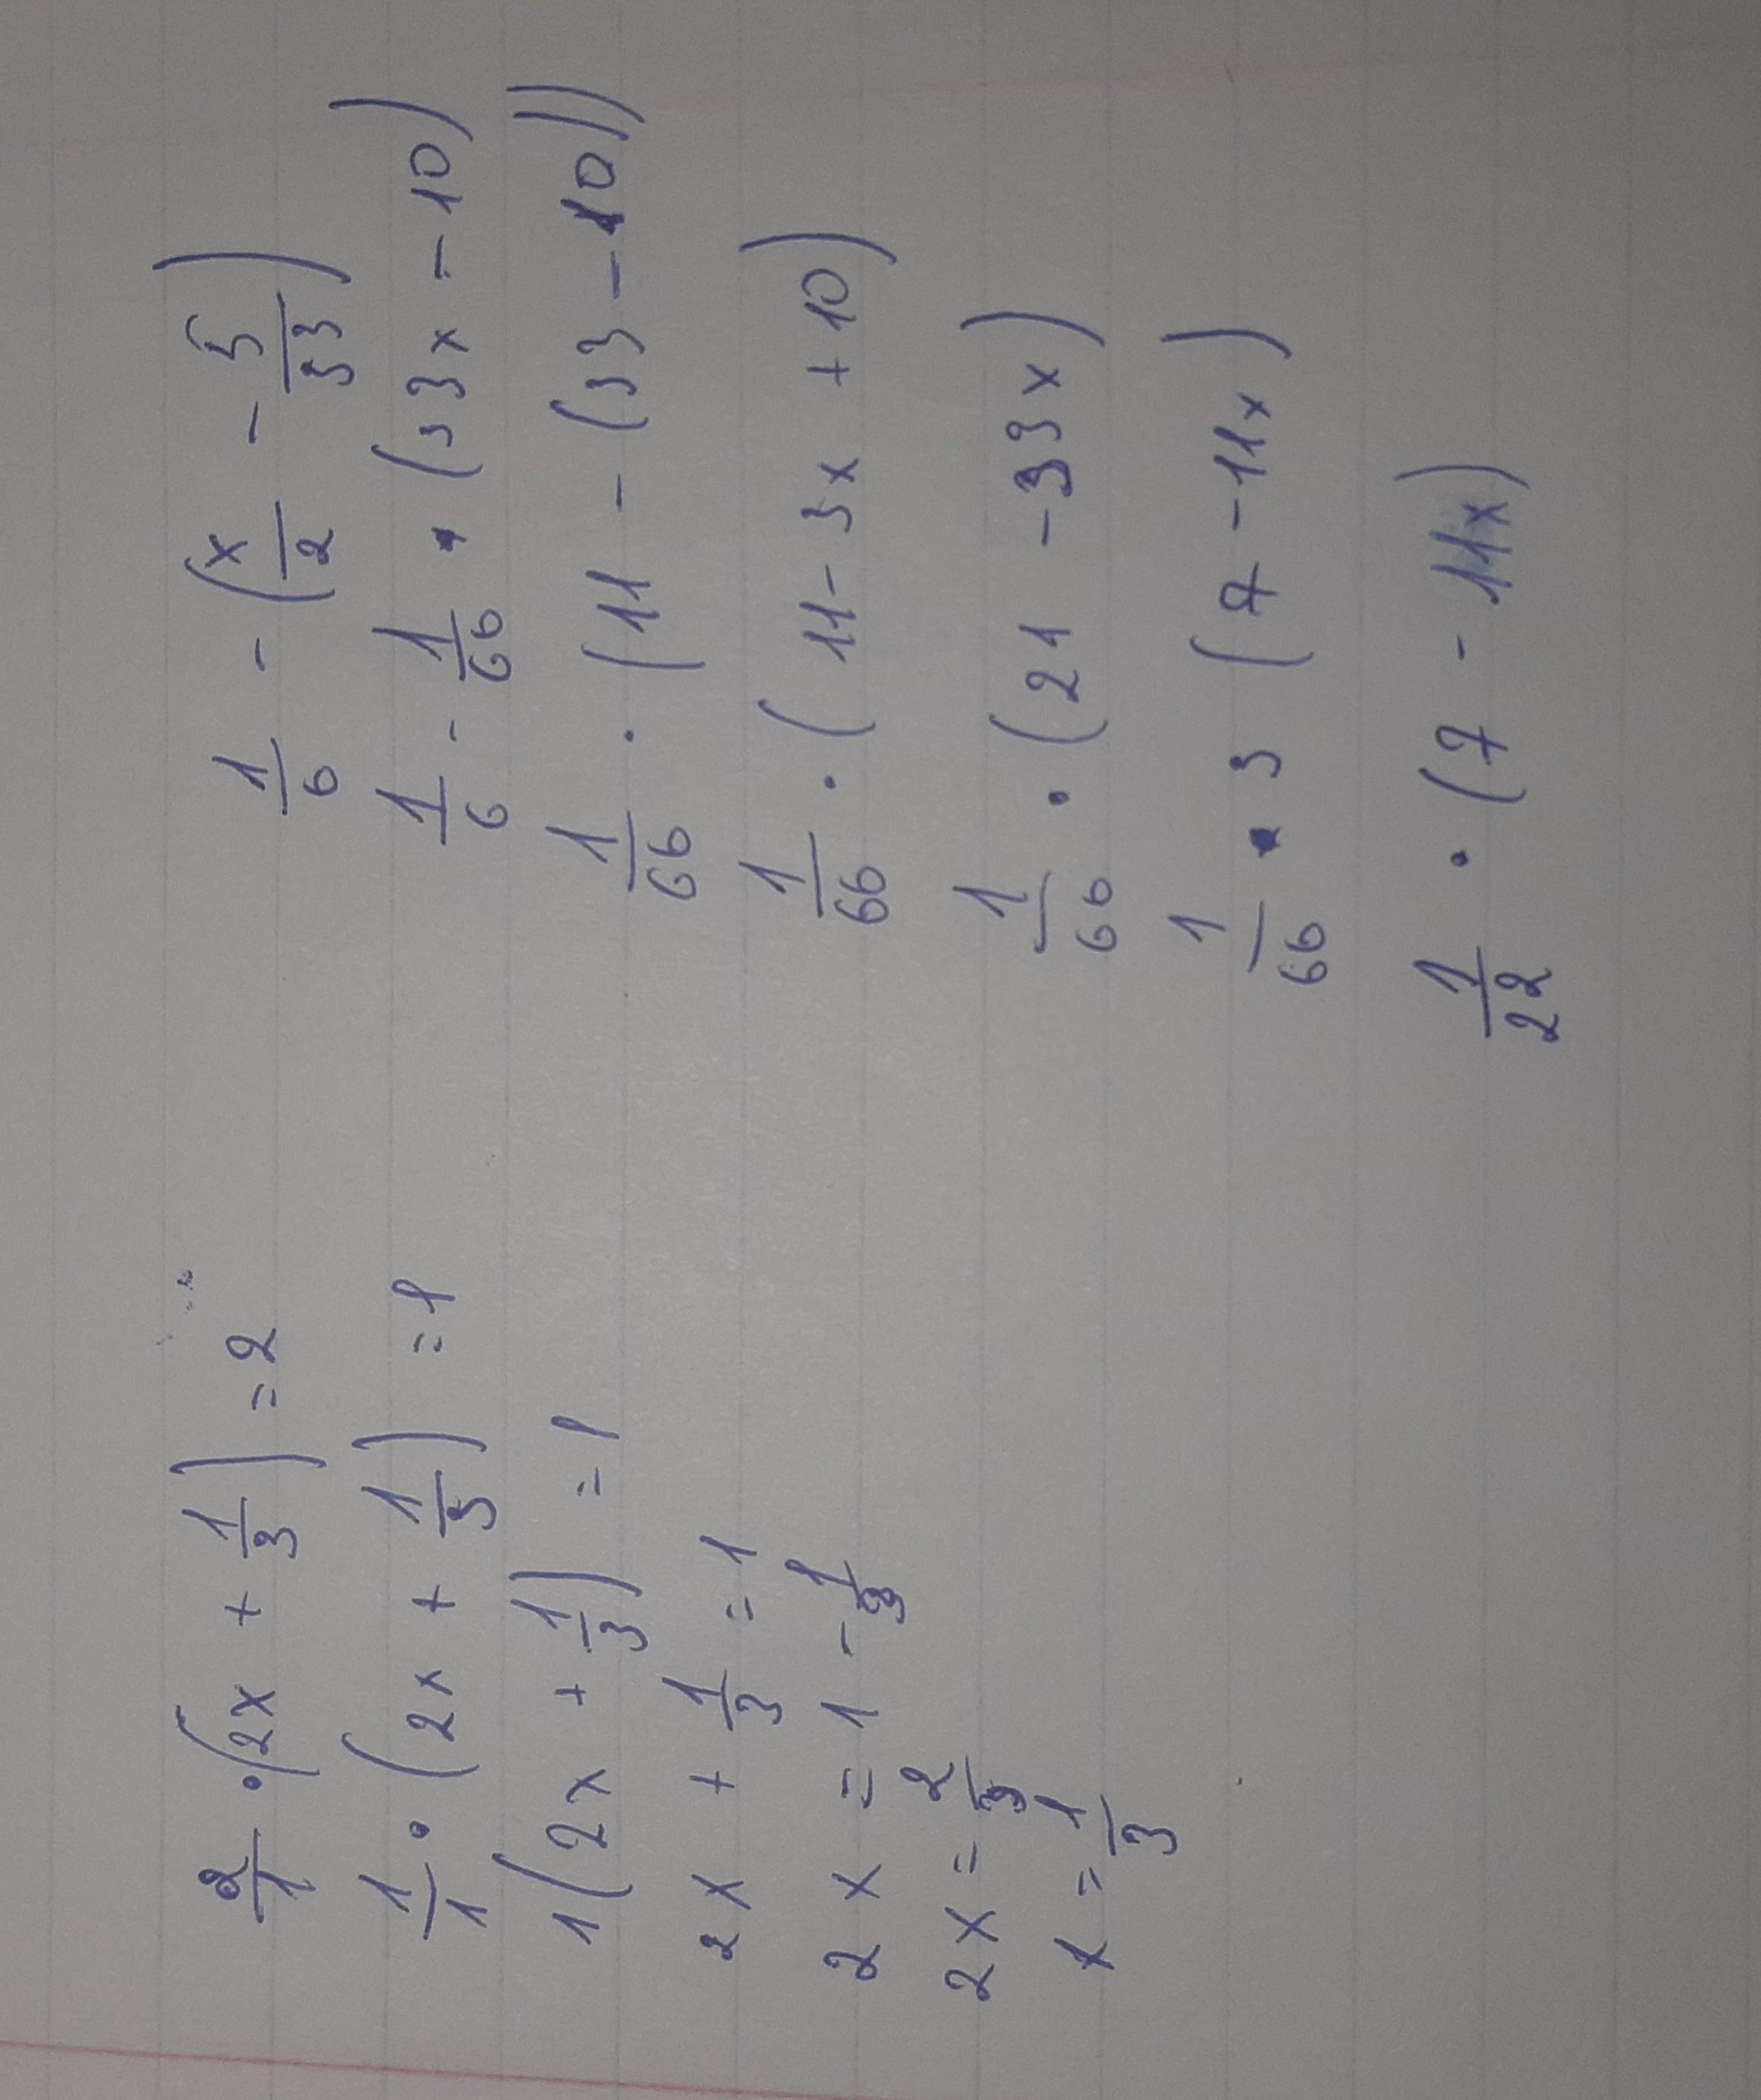 2/1 · (2x + 1/3) = 2
1/1 · (2x + 1/3) = 1
1(2x + 1/3) = 1
2x + 1/3 = 1
2x = 1 - 1/3
2x = 2/3
x = 1/3
1/6 - (x/2 - 5/33)
1/6 - 1/66 · (33x - 10)
1/66 · (11 - (33 - 10))
1/66 · (11 - 3x + 10)
1/66 · (21 - 33x)
1/66 · 3 (7 - 11x)
1/22 · (7 - 11x)